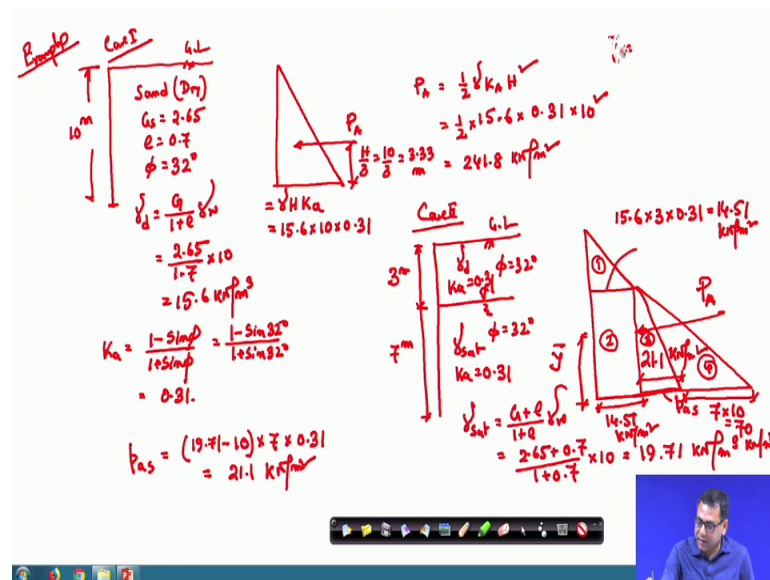 Example
Case I
G.L
10 m
Sand (Dry)
Gs = 2.65
e = 0.7
φ = 32°
γd = G/1+e γw
= 2.65/1.7 × 10
= 15.6 kN/m³
Ka = 1-Sinφ/1+Sinφ = 1-Sin32°/1+Sin32°
= 0.31.
pas = (19.71-10) × 7 × 0.31
= 21.1 kN/m²
PA
H/3 = 10/3 = 3.33 m
= γHKa
= 15.6×10×0.31
PA = 1/2 γ KA H
= 1/2 × 15.6 × 0.31 × 10
= 241.8 kN/m²
Case II
G.L
3 m
γd φ = 32°
Ka = 0.31
7 m
γsat φ = 32°
Ka = 0.31
γsat = G+e/1+e γw
= 2.65+0.7/1+0.7 × 10 = 19.71 kN/m³
15.6 × 3 × 0.31 = 14.51 kN/m²
1
2
3
4
PA
ȳ
21.1 kN/m²
14.51 kN/m²
pas
7×10
= 70
kN/m²